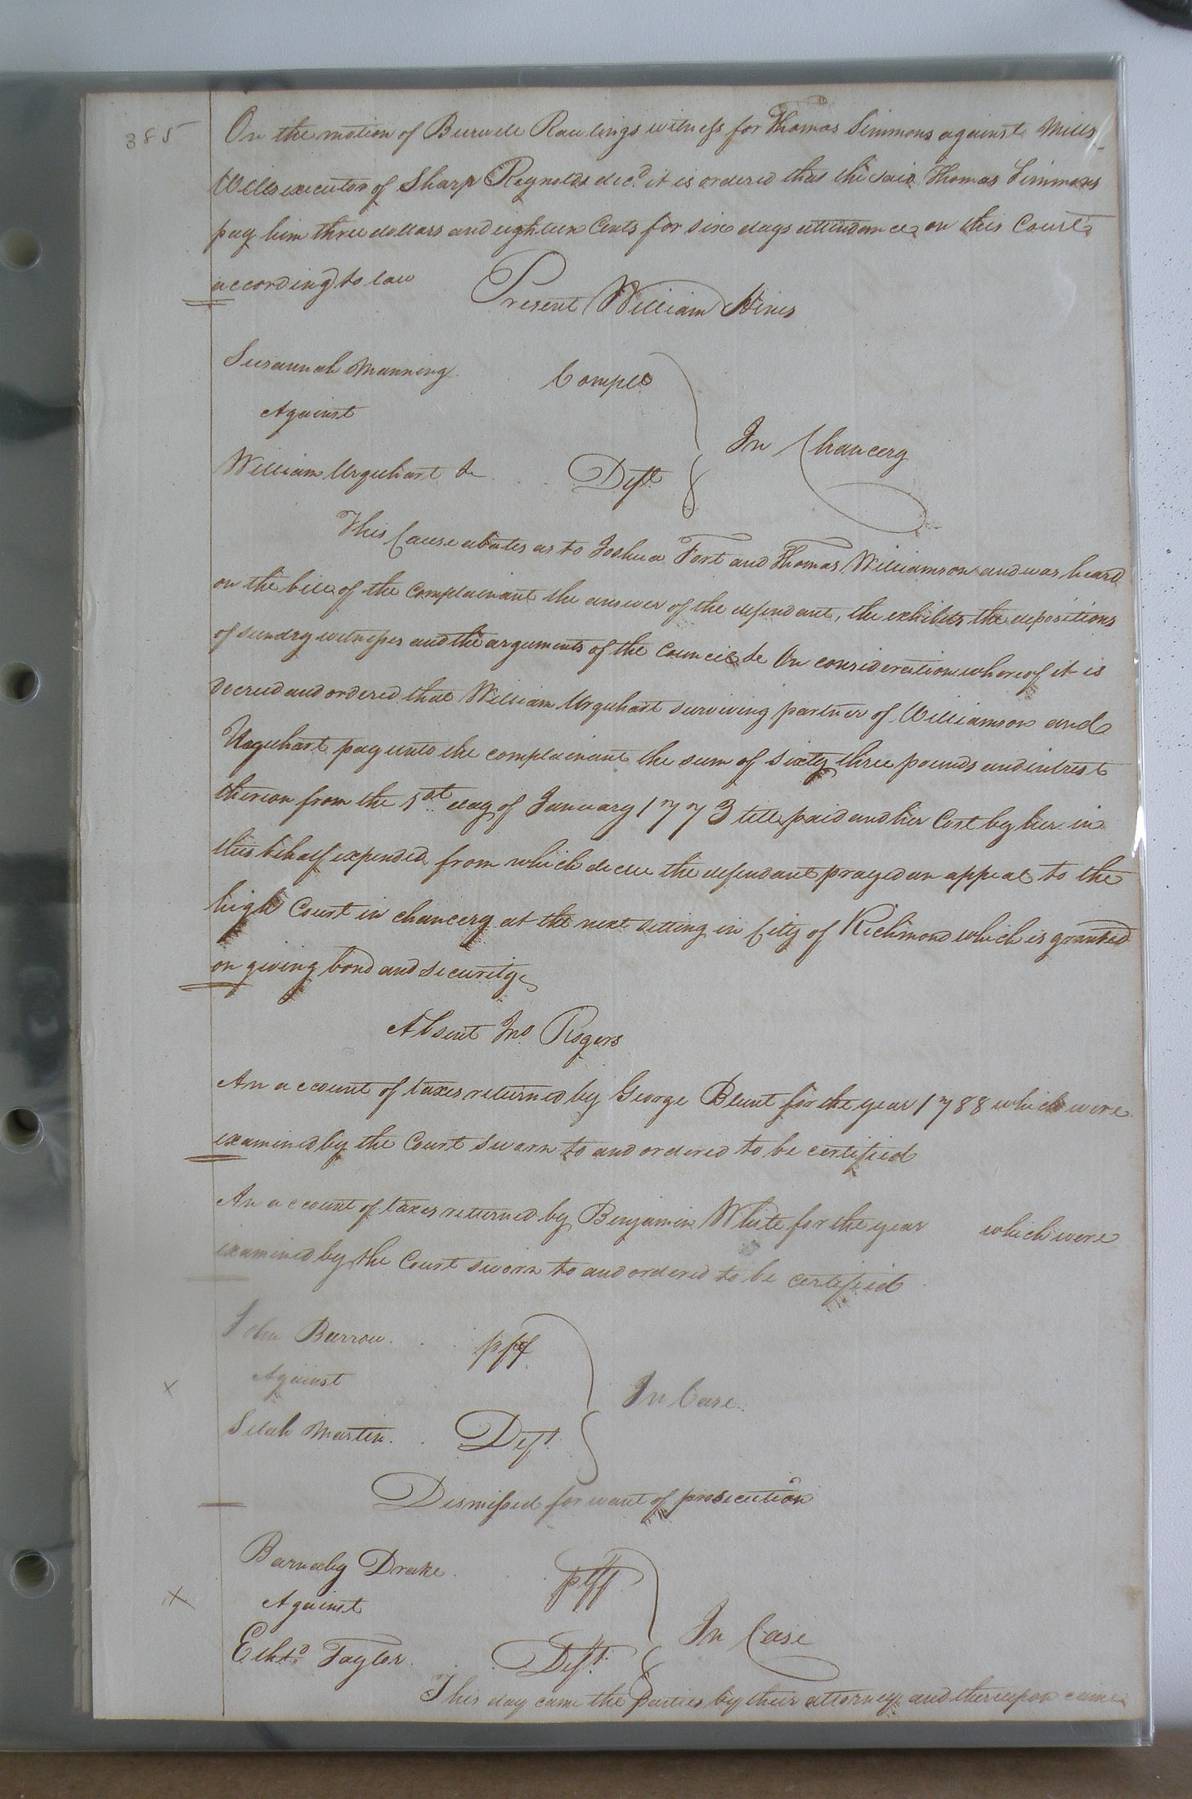 385
On the motion of Burwell Rawlings witness for Thomas Simmons against Mills
Wells executor of Sharp Reynolds decd. it is ordered that the said Thomas Simmons
pay him three dollars and eighteen Cents for six days attendance on this Court
according to law
Present William Hines
Susannah Manning Complt
Against
In Chancery
William Urquhart &c Deft.
This Cause abates as to Joshua Fort and Thomas Williamson and was heard
on the bill of the Complainant the answer of the defendant, the exhibits the depositions
of sundry witnesses and the arguments of the Council &c On consideration whereof it is
decreed and ordered that William Urquhart surviving partner of Williamson and
Urquhart pay unto the complainant the sum of sixty three pounds and intrest
thereon from the 1st day of January 1773 till paid and her Cost by her in
this behalf expended from which decree the defendant prayed an appeal to the
high Court in chancery at the next sitting in City of Richmond which is granted
on giving bond and security
Absent Jno. Rogers
An account of taxes returned by George Blunt for the year 1788 which were
examined by the Court sworn to and ordered to be certified
An account of taxes returned by Benjamin White for the year which were
examined by the Court sworn to and ordered to be certified
John Barrow plff
x Against
In Case
Selah Martin Deft.
Dismissed for want of prosecution
Barnaby Drake plff
x Against
In Case
Ethd. Taylor Deft.
This day came the Parties by their attorneys and thereupon came